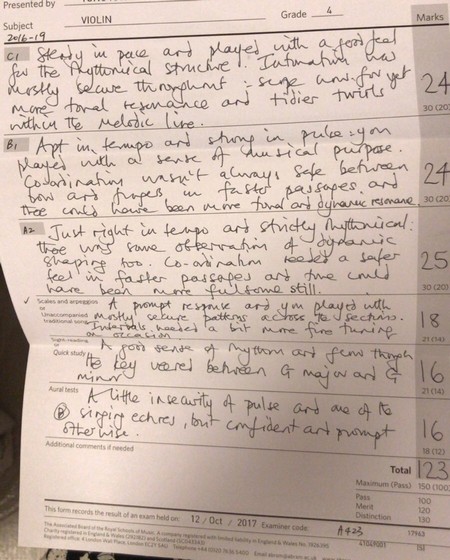 Presented by
Subject VIOLIN Grade 4 Marks
2016-19
C1 Steady in pace and played with a good feel
for the rhythmical structure! Intonation was
mostly secure throughout: surge now for yet
more tonal resonance and tidier twirls
within the melodic line.
24
30 (20)
B1 Apt in tempo and strong in pulse: you
played with a sense of musical purpose.
Coordination wasn't always safe between
bow and fingers in faster passages, and
there could have been more tonal and dynamic resonance.
24
30 (20)
A2 Just right in tempo and strictly rhythmical:
there was some observation of dynamic
shaping too. Co-ordination needed a safer
feel in faster passages and tone could
have been more fulsome still.
25
30 (20)
Scales and arpeggios A prompt response and you played with
or
Unaccompanied mostly secure patterns across the sections.
traditional song Intervals needed a bit more fine tuning
on occasion
18
21 (14)
Sight-reading
or
Quick study A good sense of rhythm and flow though
the key veered between G major and G
minor
16
21 (14)
Aural tests A little insecurity of pulse and one of the
B singing echoes, but confident and prompt
otherwise.
16
18 (12)
Additional comments if needed
Total 123
Maximum (Pass) 150 (100)
Pass 100
Merit 120
Distinction 130
This form records the result of an exam held on: 12 / Oct / 2017 Examiner code: A423 17943
The Associated Board of the Royal Schools of Music. A company registered in England & Wales No. 1926395